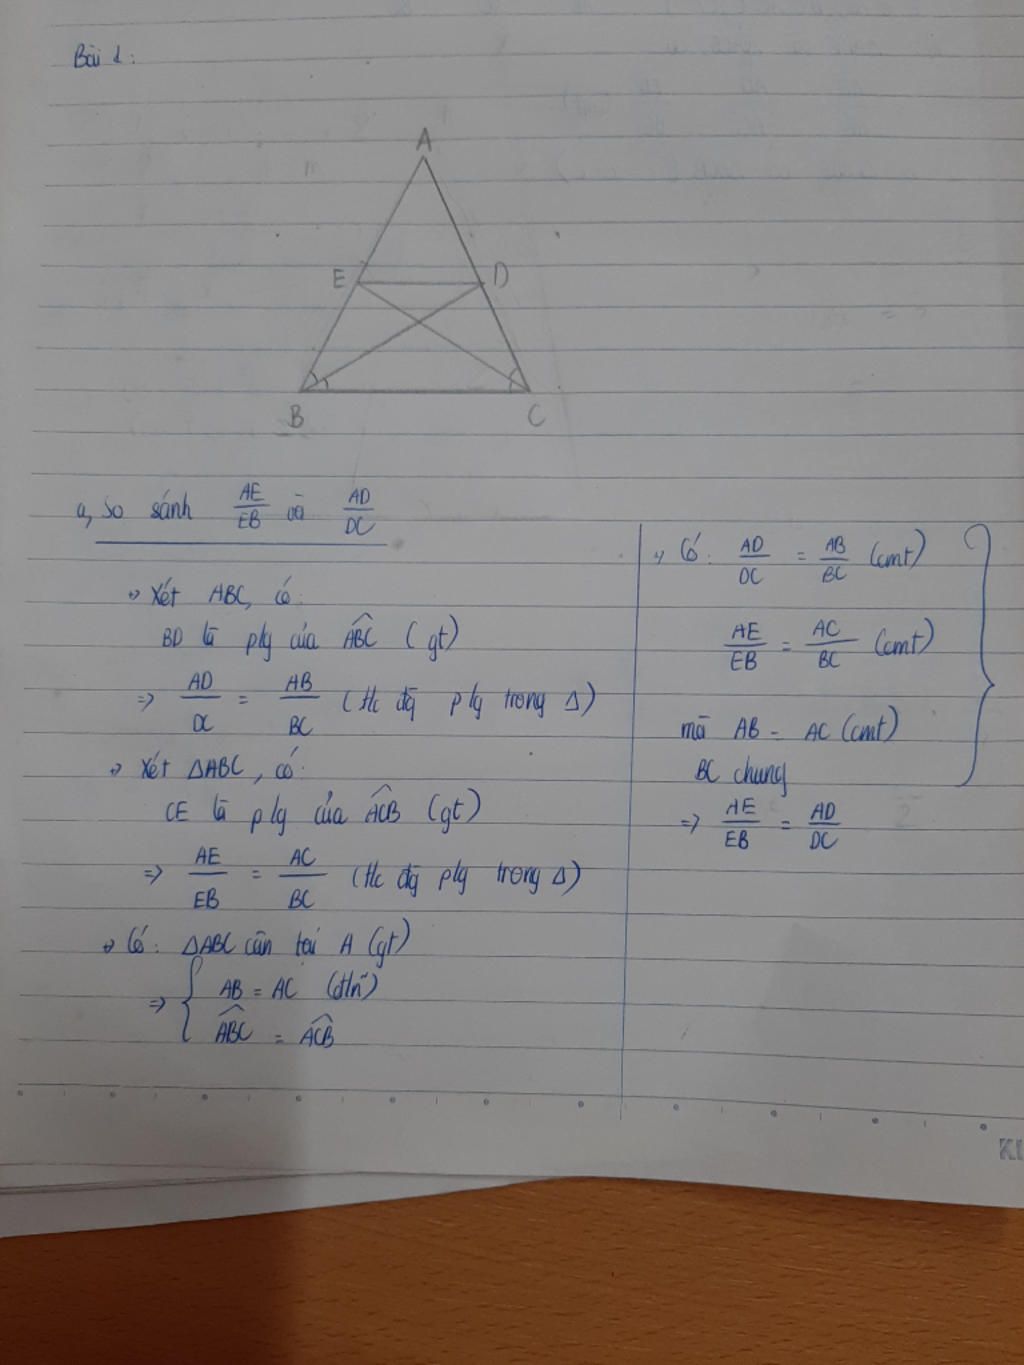 Bài 1:
A
E
D
B
C
a, So sánh AE/EB và AD/DC
+) Xét ABC, có:
BD là p/g của \widehat{ABC} (gt)
=> AD/DC = AB/BC (t/c đg p/g trong Δ)
+) Xét ΔABC, có:
CE là p/g của \widehat{ACB} (gt)
=> AE/EB = AC/BC (t/c đg p/g trong Δ)
+) Có: ΔABC cân tại A (gt)
=> { AB = AC (đ/n)
\widehat{ABC} = \widehat{ACB}
+) Có: AD/DC = AB/BC (cmt)
AE/EB = AC/BC (cmt)
mà AB = AC (cmt)
BC chung
=> AE/EB = AD/DC